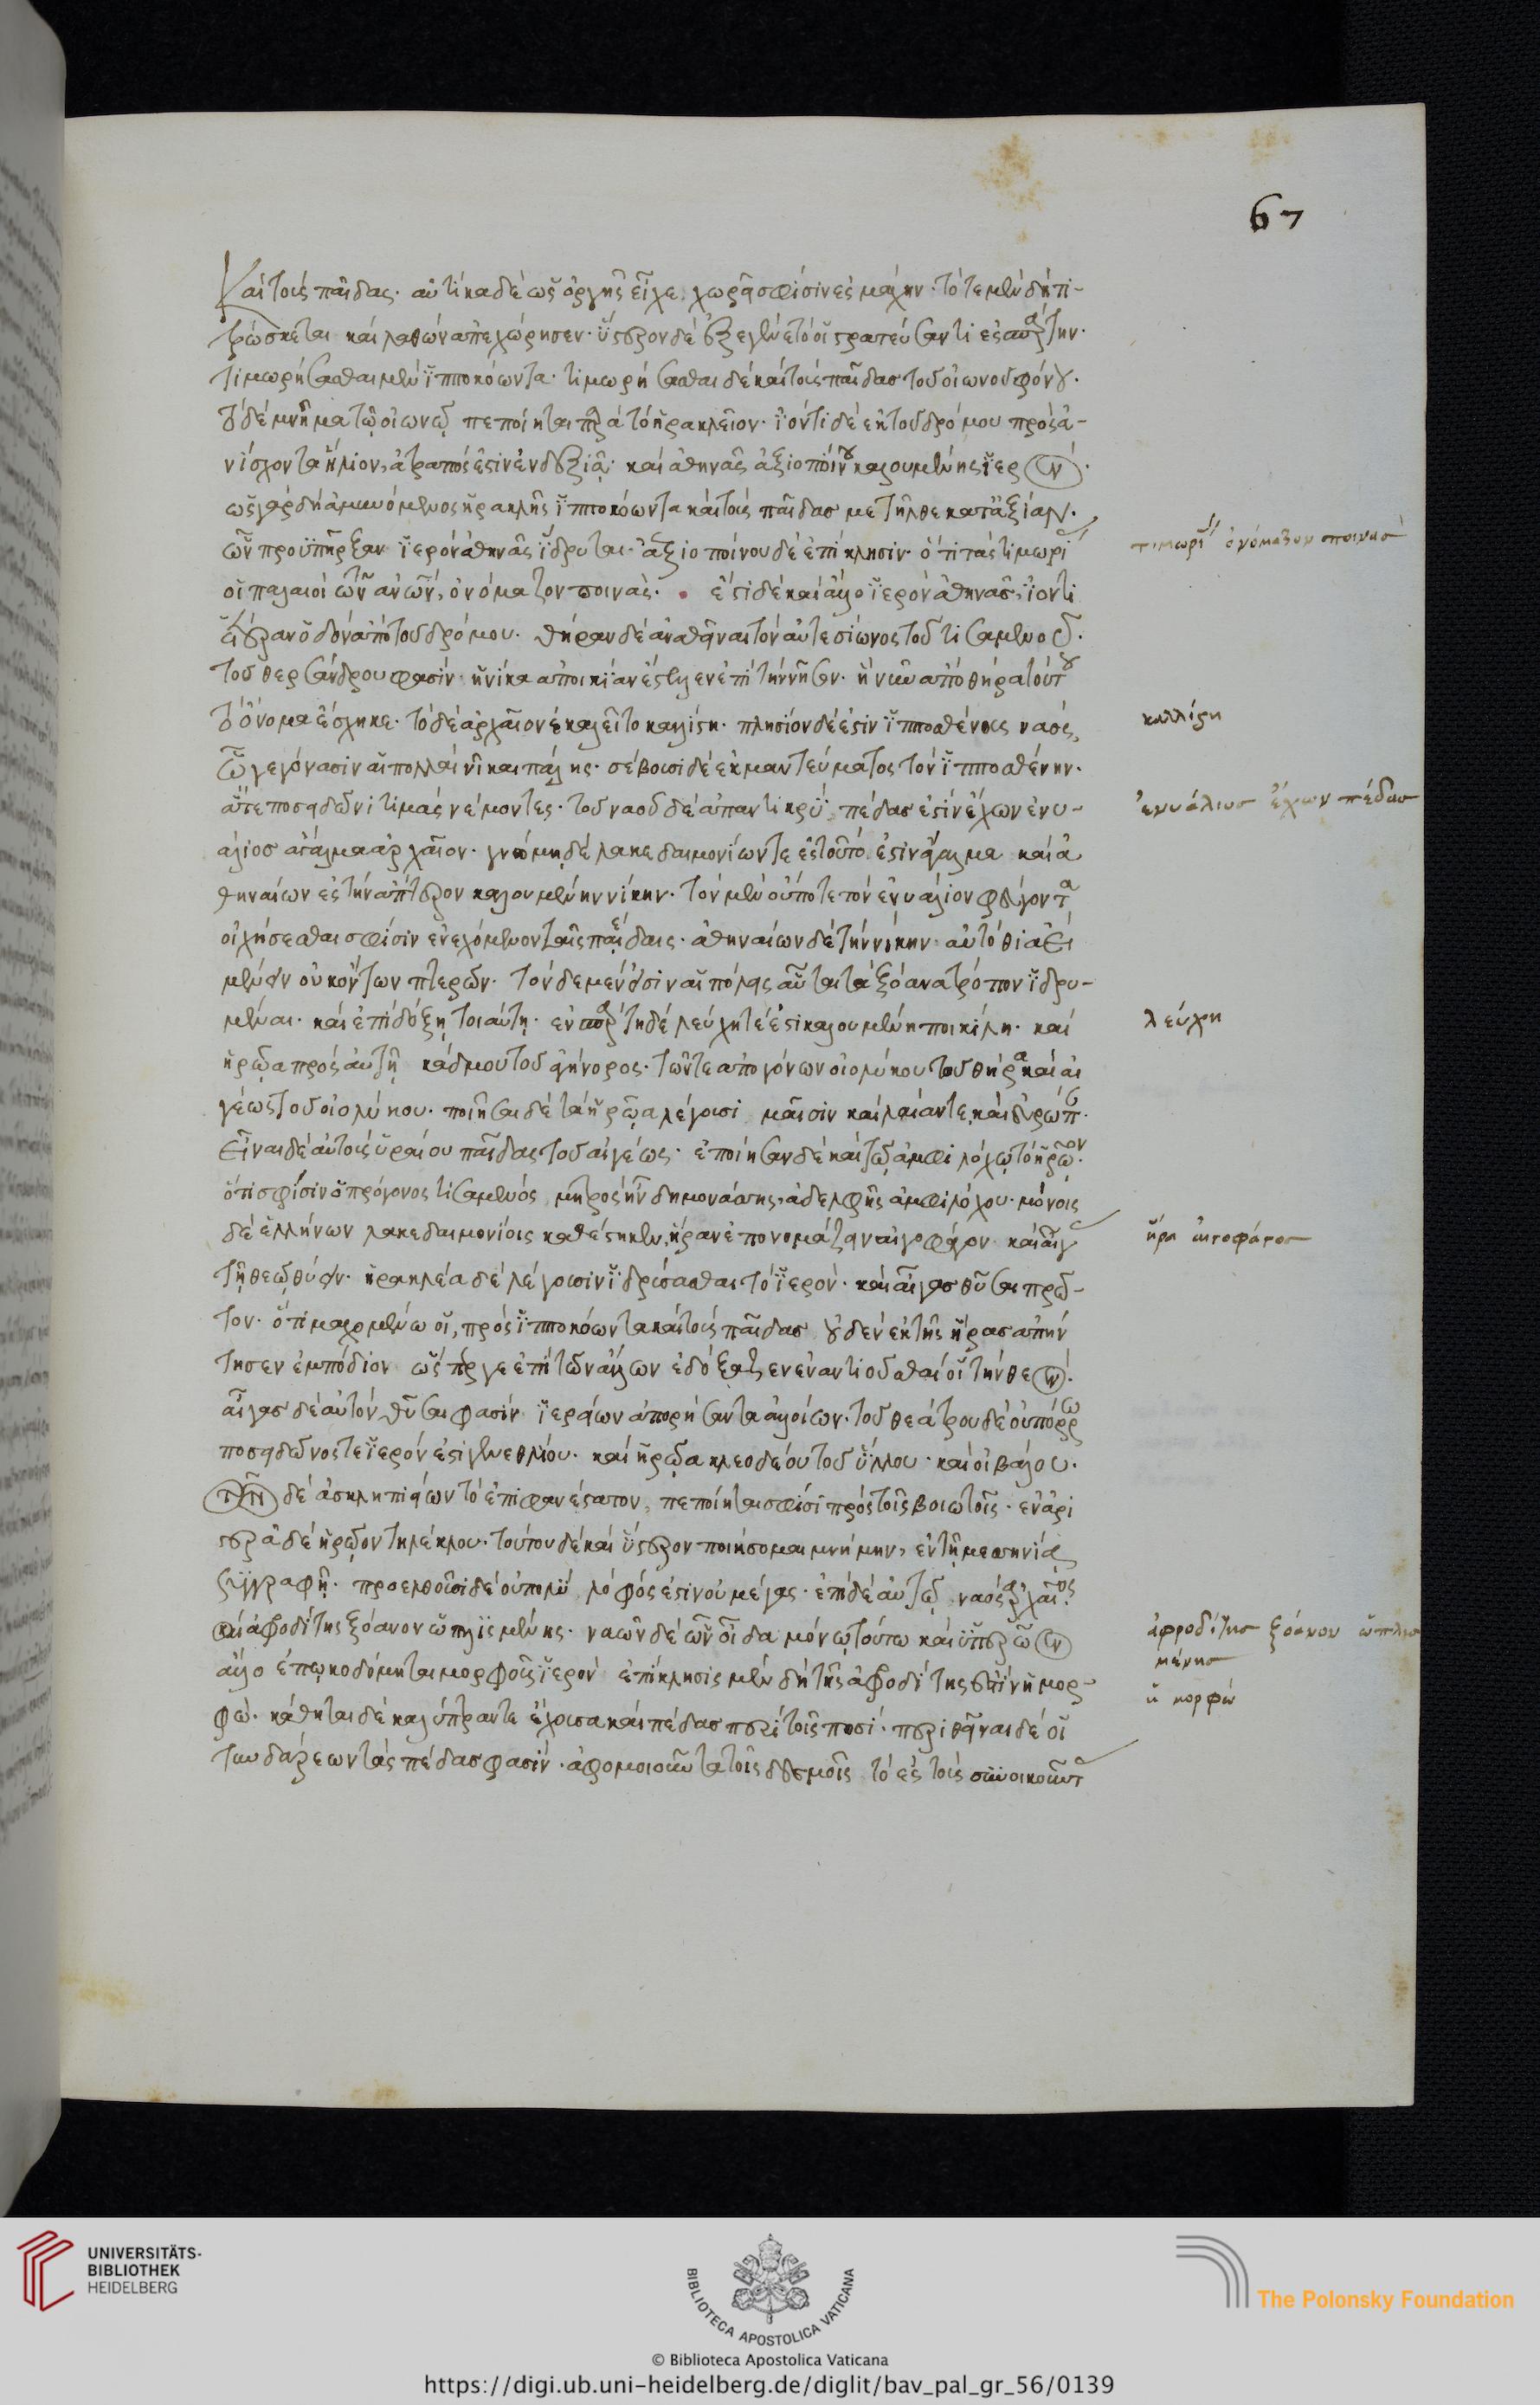 67
καὶ τοὺς παῖδας· αὐτίκα δὲ ὡς ὀργῆς εἶχε χωρεῖ σφίσιν ἐς μάχην· τότε μὲν δὴ τι-
τρώσκεται καὶ λαθὼν ἀπεχώρησεν· ὕστερον δὲ ἐξεγένετό οἱ στρατεύσαντι ἐς σπάρτην·
τιμωρήσασθαι μὲν ἱπποκόωντα· τιμωρήσασθαι δὲ καὶ τοὺς παῖδας τοῦ οἰωνοῦ φόνου·
τὸ δὲ μνῆμα τῷ οἰωνῷ πεποίηται παρὰ τὸ ἡρακλεῖον· ἰόντι δὲ ἐκ τοῦ δρόμου πρὸς ἀ-
νίσχοντα ἥλιον, ἀτραπός ἐστιν ἐν δεξιᾷ· καὶ ἀθηνᾶς ἀξιοποίνου καλουμένης ἱερόν·
ὡς γὰρ δὴ ἀμυνόμενος ἡρακλῆς ἱπποκόωντα καὶ τοὺς παῖδας μετῆλθε κατ' ἀξίαν·
ὧν προϋπῆρξαν ἱερὸν ἀθηνᾶς ἵδρυται· ἀξιοποίνου δὲ ἐπίκλησιν· ὅτι τὰς τιμωρί
οἱ παλαιοὶ τῶν ἀνων, ὀνόμαζον ποινάς· ἔστι δὲ καὶ ἄλλο ἱερὸν ἀθηνᾶς, ἰόντι
ἑτέραν ὁδὸν ἀπὸ τοῦ δρόμου· θήραν δὲ ἀναθεῖναι τὸν αὐτεσίωνος τοῦ τισαμενοῦ·
τοῦ θερσάνδρου φασίν· ἡνίκα ἀποικίαν ἔστελλεν ἐπὶ τὴν νῆσον· ἣ νῦν ἀπὸ θήρα τούτου
τὸ ὄνομα ἔσχηκε· τὸ δὲ ἀρχαῖον ἐκαλεῖτο καλλίστη· πλησίον δέ ἐστιν ἱπποσθένους ναός,
ᾧ γεγόνασιν αἱ πολλαὶ νῖκαι πάλης· σέβουσι δὲ ἐκ μαντεύματος τὸν ἱπποσθένην·
ἅτε ποσειδῶνι τιμὰς νέμοντες· τοῦ ναοῦ δὲ ἀπαντικρύ, πέδας ἐστὶν ἔχων ἐνυ-
άλιος ἄγαλμα ἀρχαῖον· γνώμη δὲ λακεδαιμονίων τε ἐς τοῦτό ἐστιν ἄγαλμα καὶ ἀ
θηναίων ἐς τὴν ἄπτερον καλουμένην νίκην· τῶν μὲν οὔποτε τὸν ἐνυάλιον φεύγοντα
οἰχήσεσθαι σφίσιν ἐνεχόμενον ταῖς πέδαις· ἀθηναίων δὲ τὴν νίκην αὐτόθι ἀεὶ
μένειν οὐκ ὄντων πτερῶν· τόνδε μέν εἰσιν αἱ πόλεις αὗται τὰ ξόανα τρόπον ἱδρυ-
μέναι· καὶ ἐπὶ δόξῃ τοιαύτῃ· ἐν σπάρτῃ δὲ λέσχη τέ ἐστι καλουμένη ποικίλη· καὶ
ἡρῷα πρὸς αὐτῇ κάδμου τοῦ ἀγήνορος· τῶν τε ἀπογόνων οἰολύκου τοῦ θήρα καὶ αἰ
γέως τοῦ οἰολύκου· ποιῆσαι δὲ τὰ ἡρῷα λέγουσι μαῖσιν καὶ λαίαν τε, καὶ εὐρώπ·
εἶναι δὲ αὐτοὺς ὑραίου παῖδας τοῦ αἰγέως· ἐποίησαν δὲ καὶ τῷ ἀμφιλόχῳ τὸ ἡρῷον·
ὅτι σφίσιν ὁ πρόγονος τισαμενός, μητρὸς ἦν δημονάσσης, ἀδελφῆς ἀμφιλόχου· μόνοις
δὲ ἑλλήνων λακεδαιμονίοις καθέστηκεν, ἥραν ἐπονομάζειν αἰγοφάγον· καὶ αἶγ
τῇ θεῷ θύειν· ἡρακλέα δὲ λέγουσιν ἱδρύσασθαι τὸ ἱερόν· καὶ αἶγας θῦσαι πρῶ-
τον· ὅτι μαχομένῳ οἱ, πρὸς ἱπποκόωντα καὶ τοὺς παῖδας οὐδὲν ἐκ τῆς ἥρας ἀπήν
τησεν ἐμπόδιον ὥσπερ γε ἐπὶ τῶν ἄλλων ἐδόξαζεν ἐναντιοῦσθαί οἱ τὴν θεόν·
αἶγας δὲ αὐτὸν θῦσαι φασὶν ἱερείων ἀπορήσαντα ἀλλοίων· τοῦ θεάτρου δὲ οὐ πόρρω
ποσειδῶνος τε ἱερόν ἐστι γενεθλίου· καὶ ἡρῷα κλεοδέου τοῦ ὕλλου· καὶ οἰβάλου·
τῶν δὲ ἀσκληπιείων τὸ ἐπιφανέστατον, πεποίηται σφίσι πρὸς τοῖς βοιωτοῖς· ἐν ἀρι
στερᾷ δὲ ἡρῷον τηλέκλου· τούτου δὲ καὶ ὕστερον ποιήσομαι μνήμην, ἐν τῇ μεσσηνίᾳ
ξυγγραφῇ· προελθοῦσι δὲ οὐ πολὺ λόφος ἐστὶν οὐ μέγας· ἐπὶ δὲ αὐτῷ ναὸς ἀρχαῖος·
καὶ ἀφροδίτης ξόανον ὡπλισμένης· ναῶν δὲ ὧν οἶδα μόνῳ τούτῳ καὶ ὑπερῷον
ἄλλο ἐπῳκοδόμηται μορφοῦς ἱερόν ἐπίκλησις μὲν δὴ τῆς ἀφροδίτης ἐστὶν ἡ μορ-
φώ· κάθηται δὲ καλύπτραν τε ἔχουσα καὶ πέδας περὶ τοῖς ποσί· περιθεῖναι δέ οἱ
τυνδάρεων τὰς πέδας φασίν· ἀφομοιοῦντα τοῖς δεσμοῖς τὸ ἐς τοὺς συνοικοῦντ
τιμωρί ὀνόμαζον ποινας
καλλίστη
ἐνυάλιος ἔχων πέδας
λέσχη
ἥρα αἰγοφάγος
ἀφροδίτης ξόανον ὡπλισ
μένης
ἡ μορφώ
UNIVERSITÄTS-
BIBLIOTHEK
HEIDELBERG
BIBLIOTECA APOSTOLICA VATICANA
The Polonsky Foundation
© Biblioteca Apostolica Vaticana
https://digi.ub.uni-heidelberg.de/diglit/bav_pal_gr_56/0139